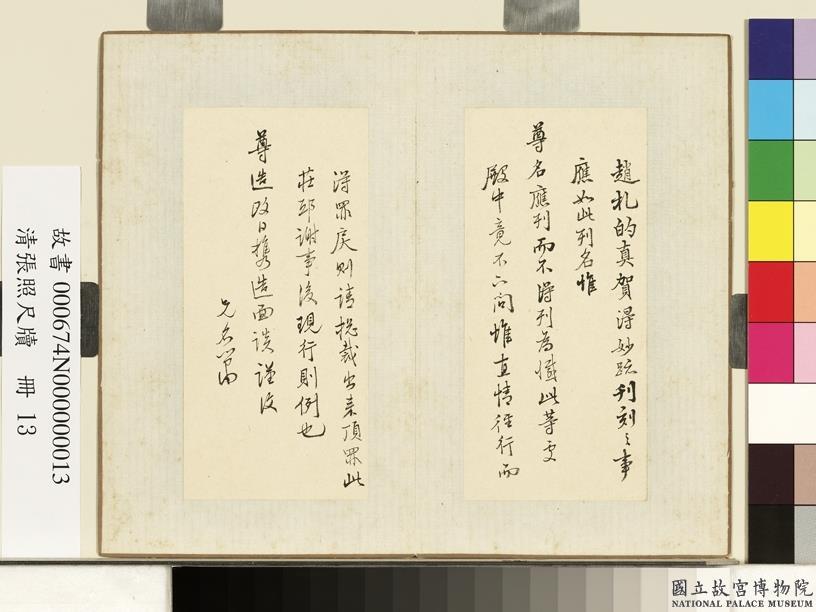 趙札的真賀得妙跡刊刻之事
應如此列名惟
尊名應列而不得列為慨此等更
殿中竟不一問惟直情徑行而
得眾戾則請總裁出來頂眾此
莊邸謝事後現行則例也
尊造改日攜造面談謹復
故書 000674N000000013
清張照尺牘 冊 13
國立故宮博物院
NATIONAL PALACE MUSEUM